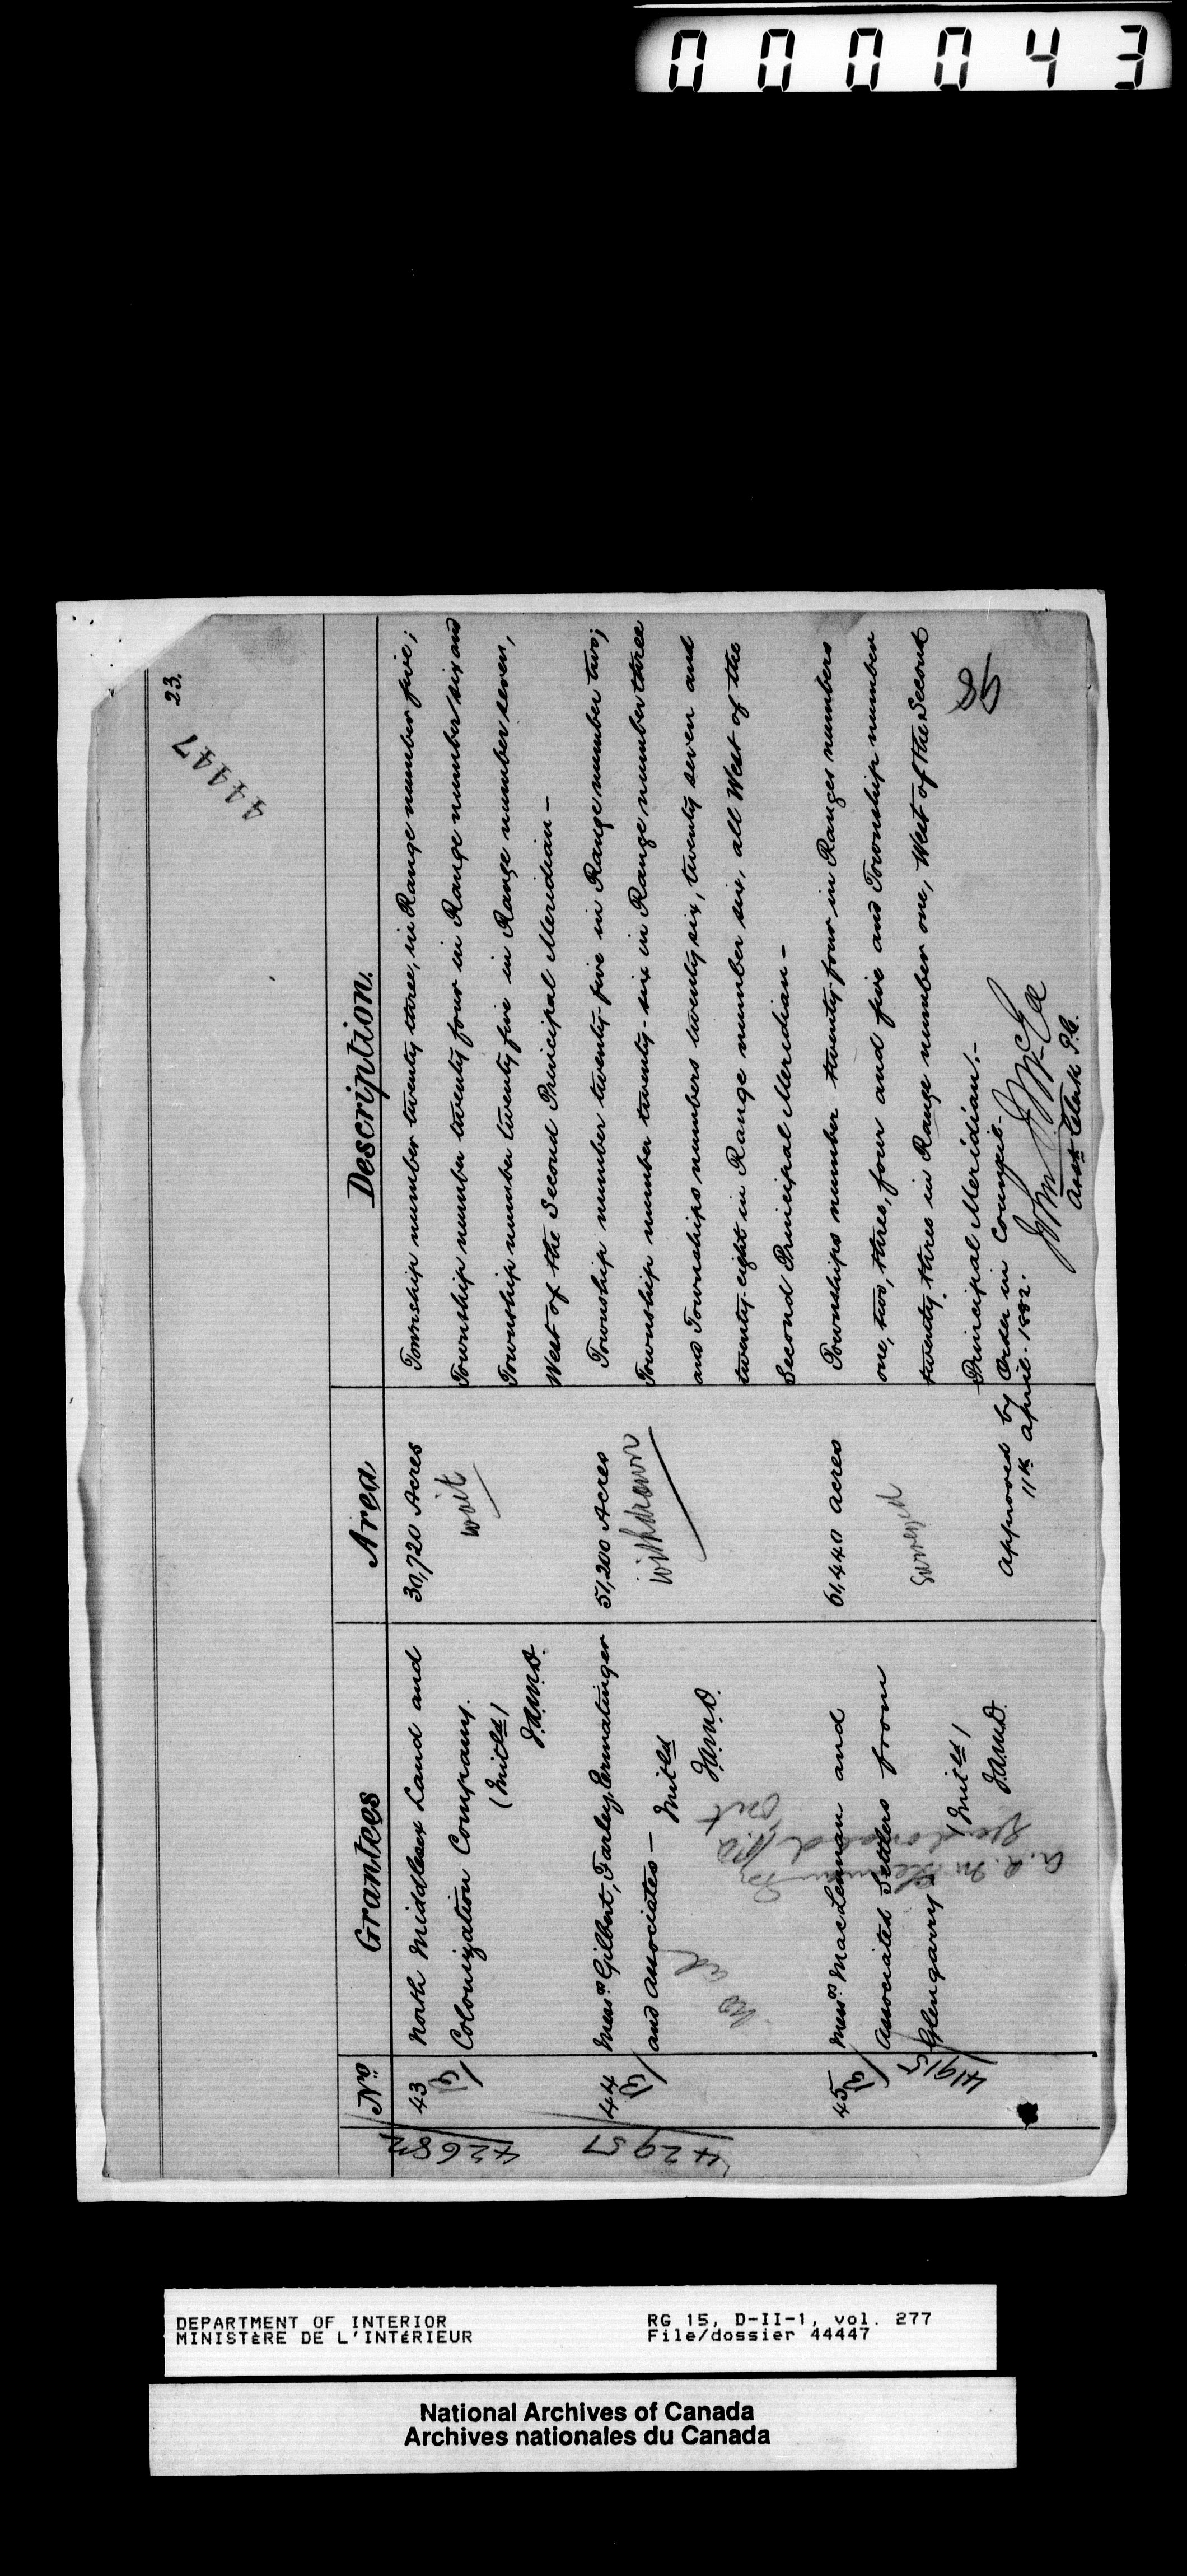 000043
23.
44447
Nos Grantees Area Description.
42682
43 North Middlesex Land and
Colonization Company.
(Intld)
J.A.M.D.
30,720 Acres
wait
Township number twenty three, in Range number five;
Township number twenty four in Range number six and
Township number twenty five in Range number seven,
West of the Second Principal Meridian —
42951
44 Messrs Gilbert, Farley, Ermatinger
and Associates —
Intld
J.A.M.D.
51,200 Acres
withdrawn
Township number twenty-five in Range number two;
Township number twenty-six in Range number three
and Townships numbers twenty six, twenty seven and
twenty-eight in Range number six, all West of the
Second Principal Meridian —
45 Messrs MacLennan and
Associated Settlers from
Glengarry
41915
(Intld)
J.A.M.D.
61,440 acres
Surveyed
Townships number twenty-four in Ranges numbers
one, two, three, four and five and Township number
twenty three in Range number one, West of the Second
Principal Meridian. —
Approved by Order in Council —
11th April. 1882.
John J. McGee
Asst Clerk P.C.
86
DEPARTMENT OF INTERIOR
MINISTÈRE DE L'INTÉRIEUR
RG 15, D-II-1, vol. 277
File/dossier 44447
National Archives of Canada
Archives nationales du Canada